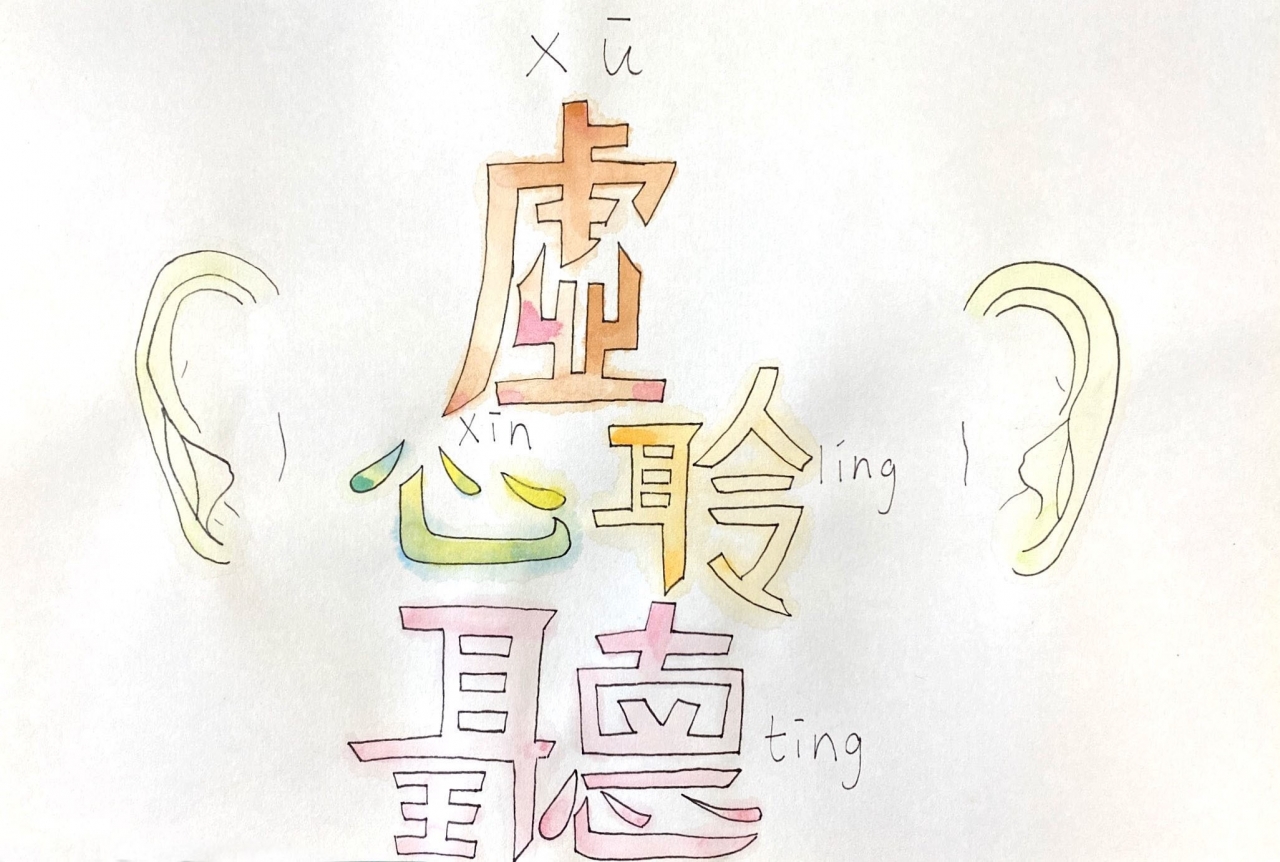 xū
虛
xīn
心 聆 líng
聽 tīng